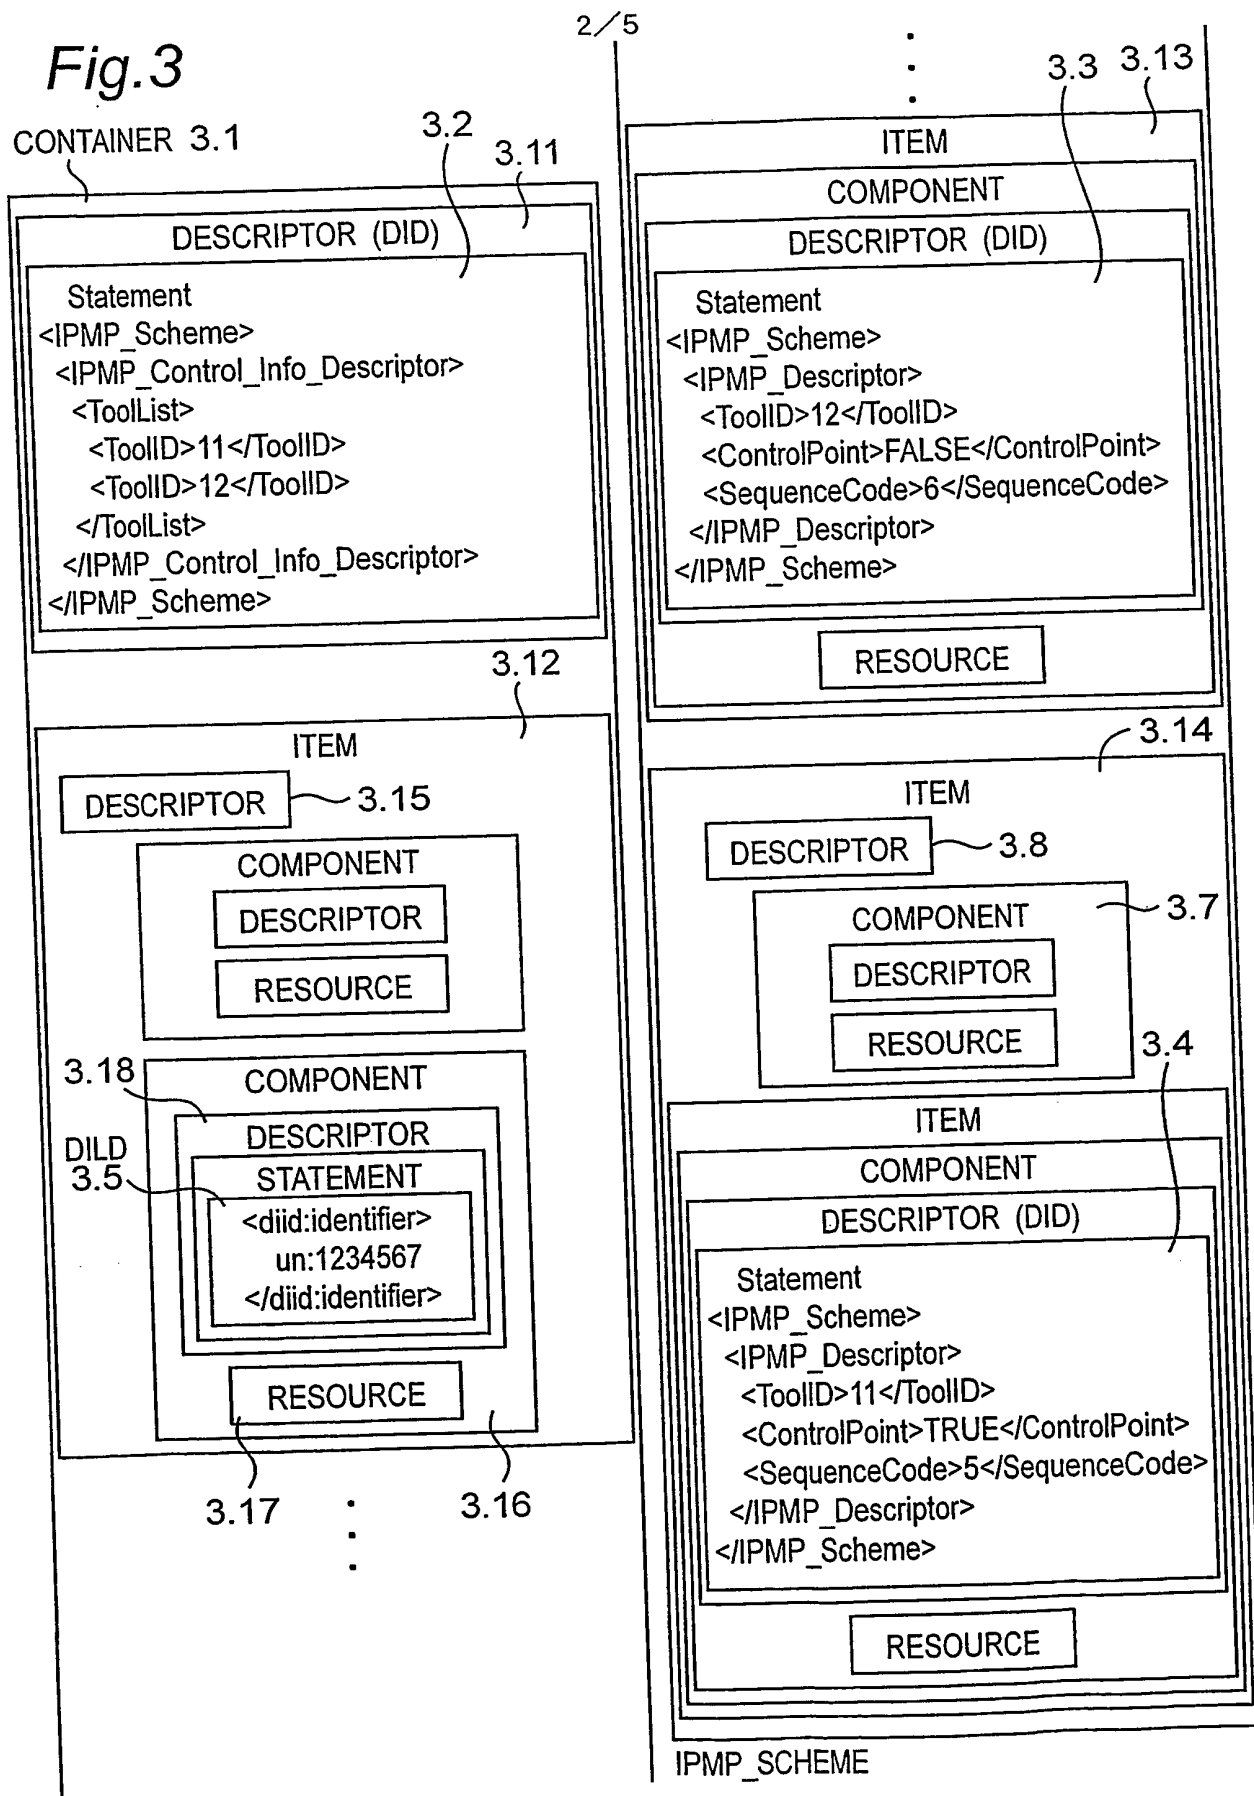 2/5
Fig.3
CONTAINER 3.1
3.2
3.11
DESCRIPTOR (DID)
Statement
<IPMP_Scheme>
<IPMP_Control_Info_Descriptor>
<ToolList>
<ToolID>11</ToolID>
<ToolID>12</ToolID>
</ToolList>
</IPMP_Control_Info_Descriptor>
</IPMP_Scheme>
3.12
ITEM
DESCRIPTOR
3.15
COMPONENT
DESCRIPTOR
RESOURCE
3.18
COMPONENT
DESCRIPTOR
DILD
3.5
STATEMENT
<diid:identifier>
un:1234567
</diid:identifier>
RESOURCE
3.17
3.16
3.3
3.13
ITEM
COMPONENT
DESCRIPTOR (DID)
Statement
<IPMP_Scheme>
<IPMP_Descriptor>
<ToolID>12</ToolID>
<ControlPoint>FALSE</ControlPoint>
<SequenceCode>6</SequenceCode>
</IPMP_Descriptor>
</IPMP_Scheme>
RESOURCE
3.14
ITEM
DESCRIPTOR
3.8
COMPONENT
3.7
DESCRIPTOR
RESOURCE
3.4
ITEM
COMPONENT
DESCRIPTOR (DID)
Statement
<IPMP_Scheme>
<IPMP_Descriptor>
<ToolID>11</ToolID>
<ControlPoint>TRUE</ControlPoint>
<SequenceCode>5</SequenceCode>
</IPMP_Descriptor>
</IPMP_Scheme>
RESOURCE
IPMP_SCHEME